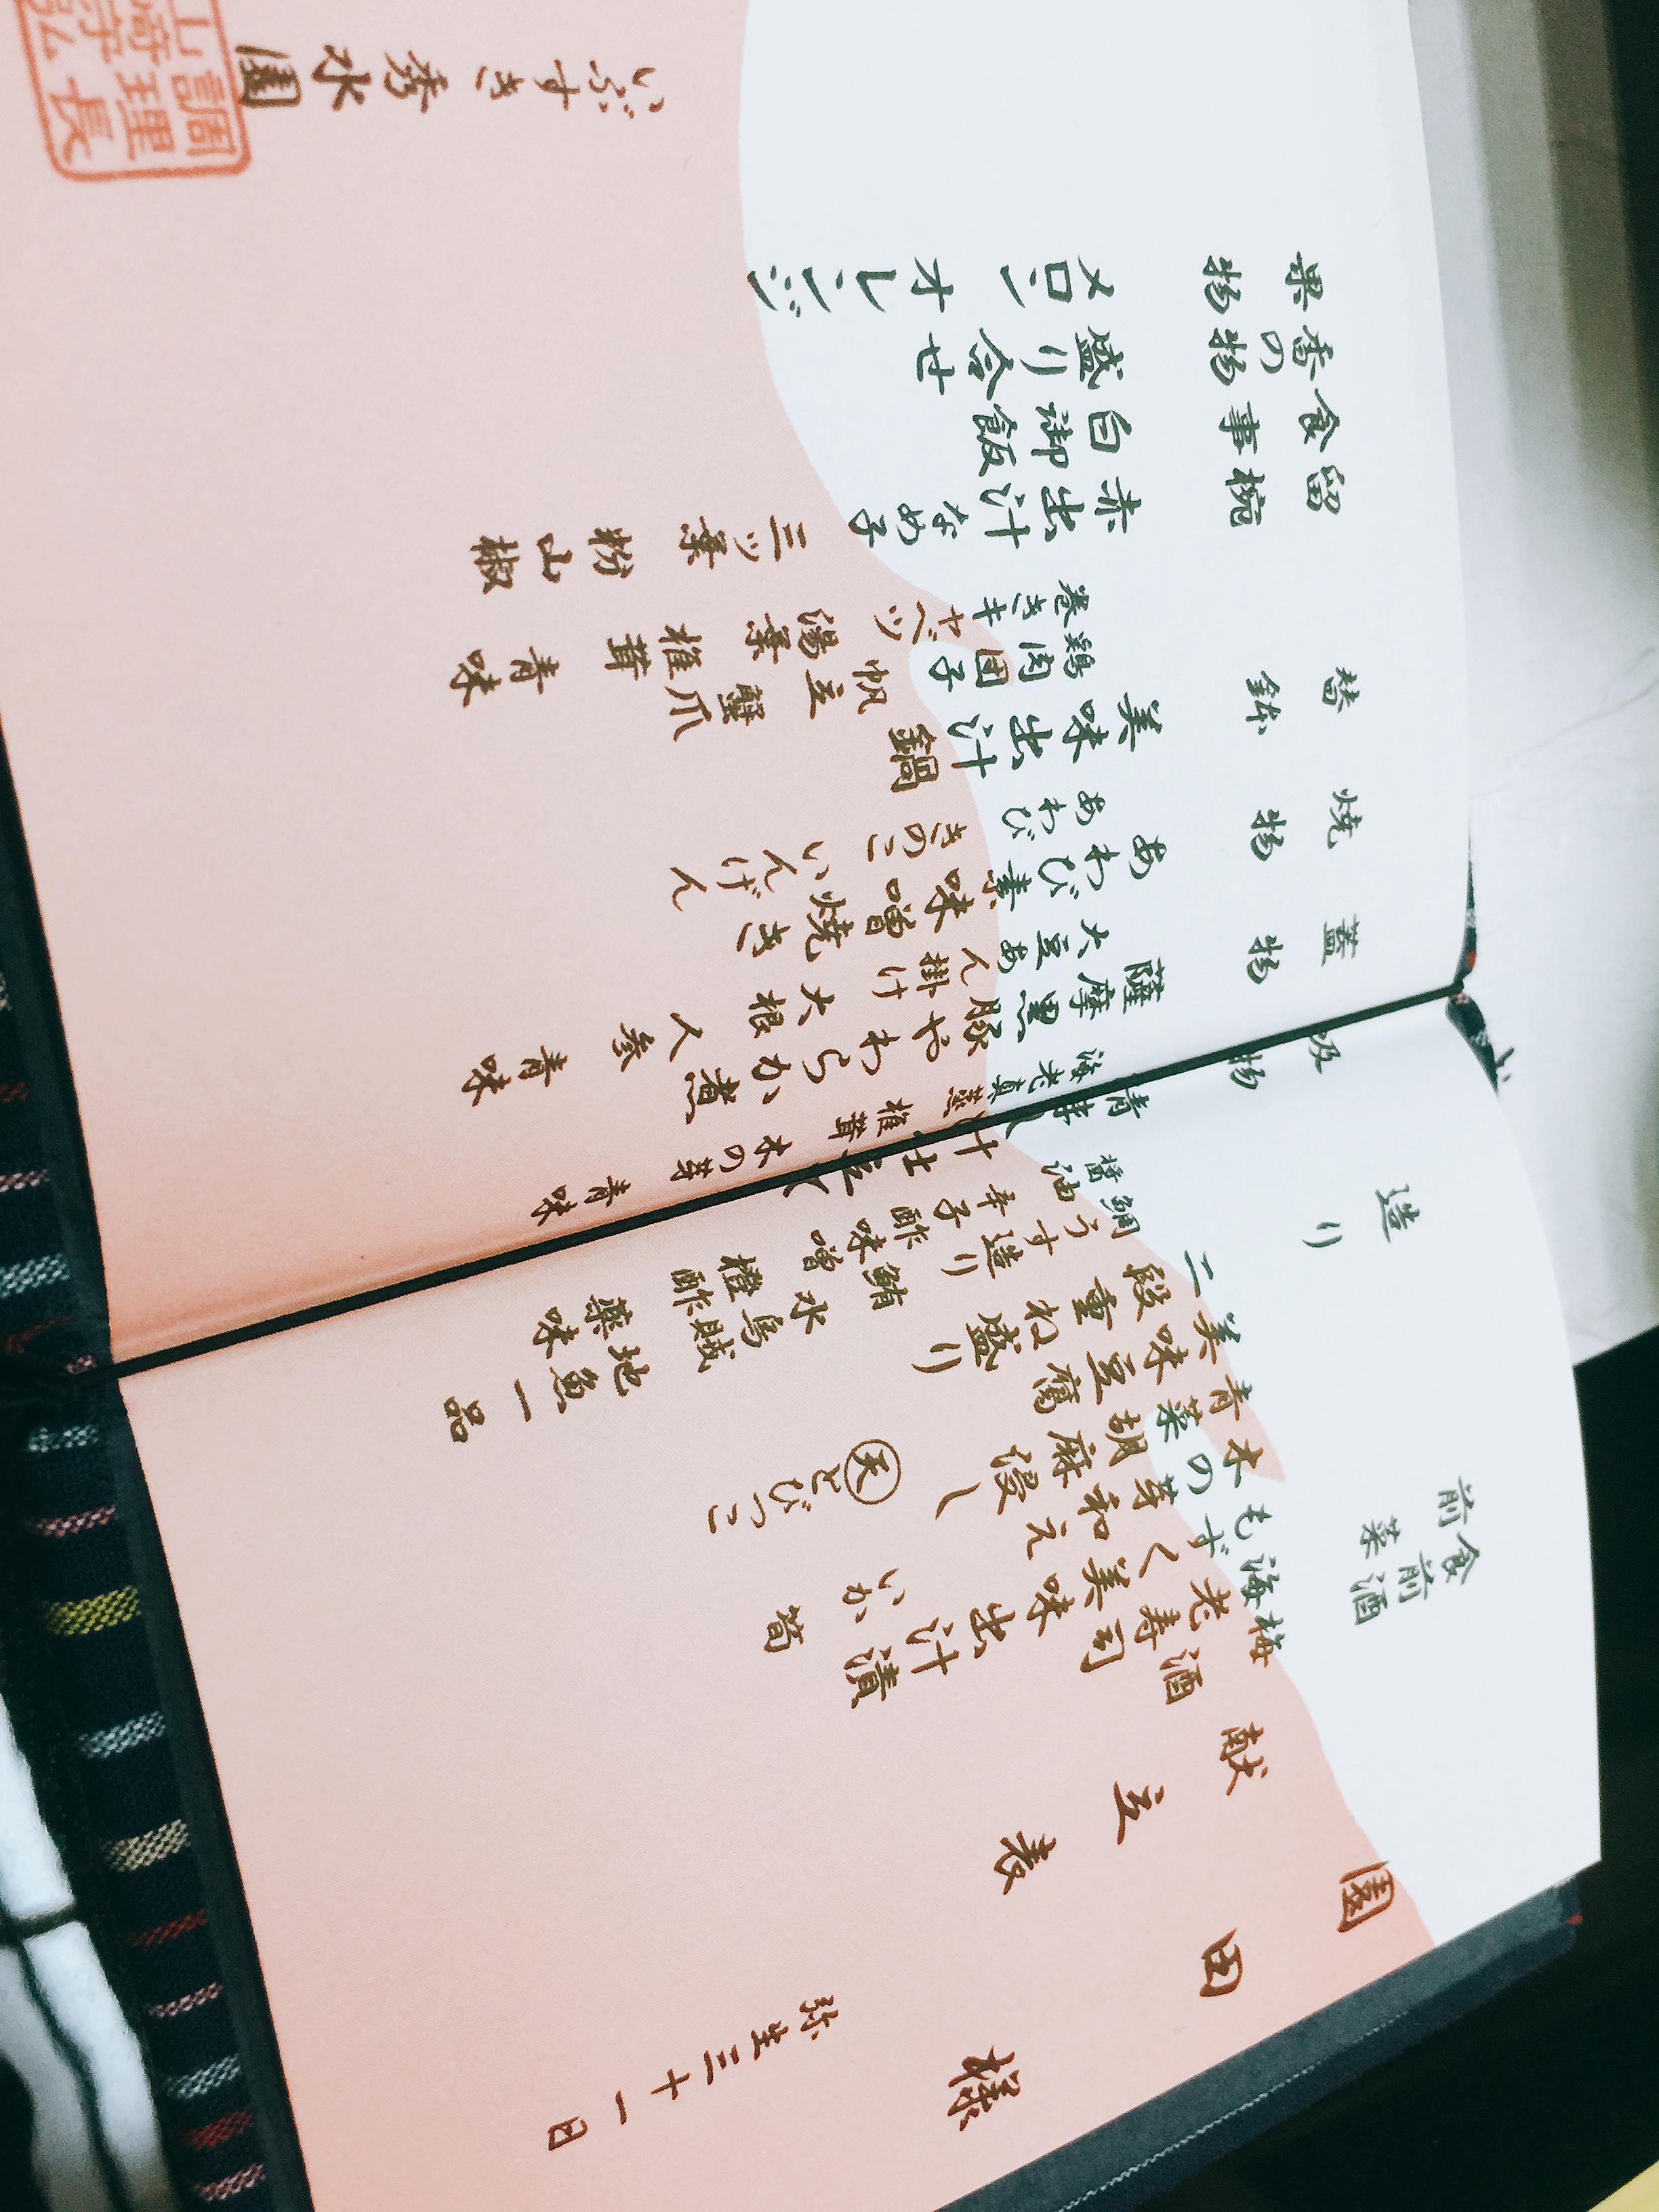 園田様
弥生三十一日
献立表
食前酒 梅酒
前菜 海老寿司
もずく美味出汁漬
木の芽和え いか 筍
青菜胡麻浸し 天 とびっこ
美味豆腐
造り 二段重ね盛り
鯛うす造り 鮪 烏賊 地魚一品
醤油 辛子酢味噌 水 橙酢 薬味
吸物
海老真蒸 椎茸 木の芽 青味
蓋物 薩摩黒豚やわらか煮
大豆あん掛け 大根 人参 青味
焼物 あわび素味噌焼き
あわび きのこ いんげん
替鉢 美味出汁鍋
鶏肉団子 帆立 蟹爪
巻きキャベツ 湯葉 椎茸 青味
留椀 赤出汁 なめ子 三ツ葉 粉山椒
食事 白御飯
香の物 盛り合せ
果物 メロン オレンジ
いぶすき 秀水園
調理長